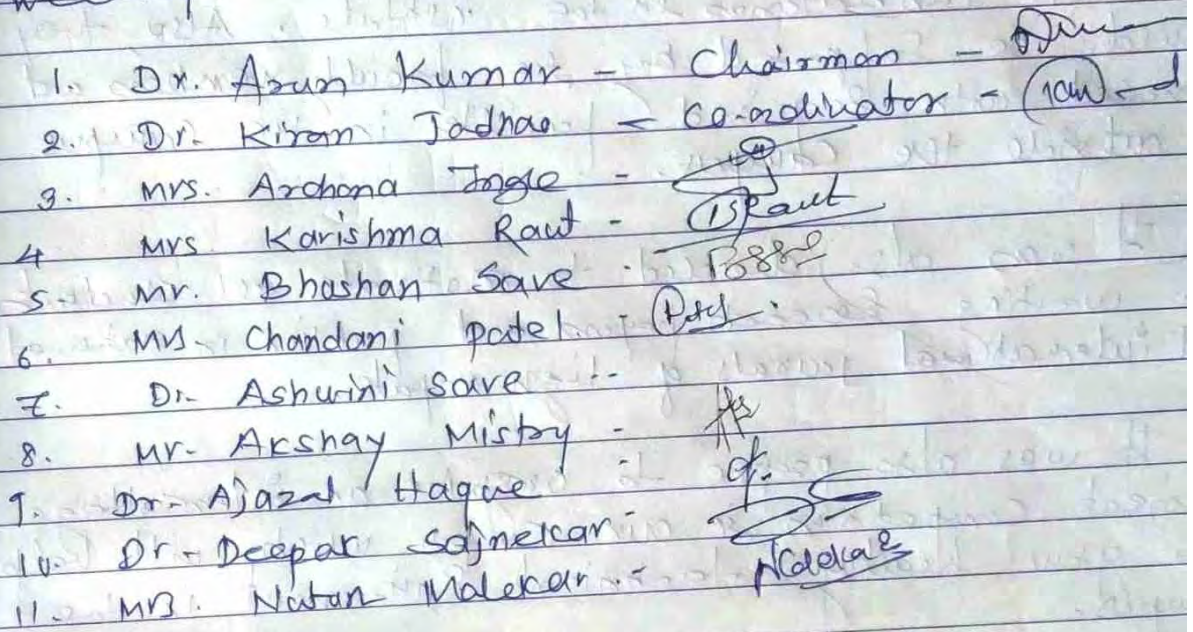 1. Dr. Arun Kumar - Chairman -
2. Dr. Kiran Jadhao - Co-ordinator -
3. Mrs. Archana Ingle -
4 Mrs Karishma Raut - Raut
5. Mr. Bhushan Save -
6. Mrs Chandani Patel -
7. Dr. Ashwini Save -
8. Mr. Akshay Mistry -
9. Dr. Ajazul Haque
10. Dr. Deepak Sajnekar -
11. Mrs. Nutan Malekar -